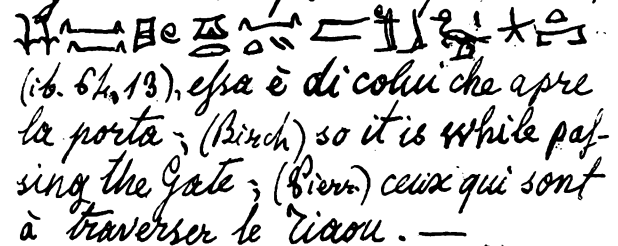 (ib. 64, 13), essa è di colui che apre
la porta; (Birch) so it is while pas-
sing the Gate; (Pierr.) ceux qui sont
à traverser le Tiaou. —